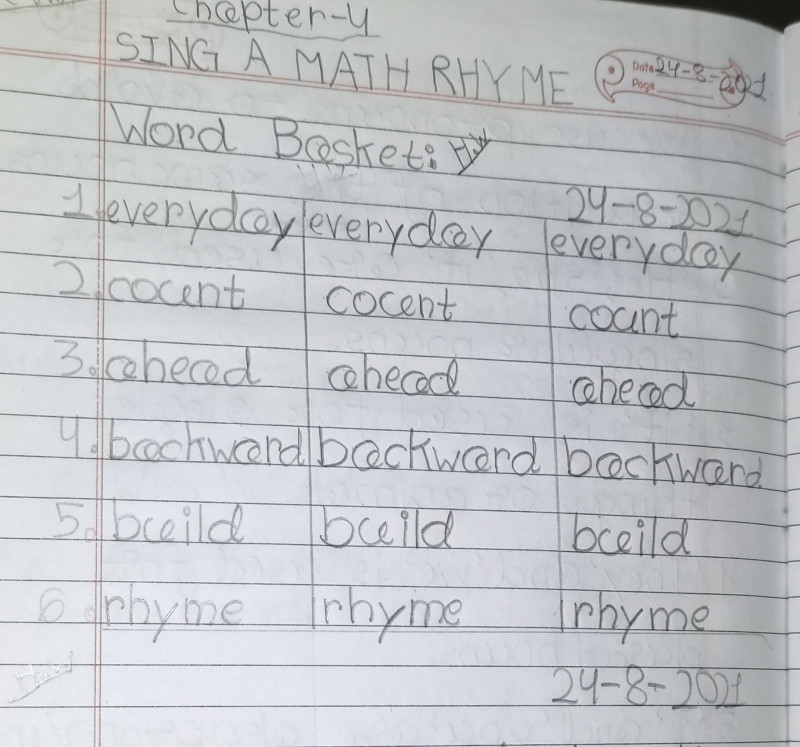 Chapter-4
SING A MATH RHYME
Date 24-8-2021
Page
Word Basket: H.W
24-8-2021
1. everyday everyday everyday
2. count count count
3. ahead ahead ahead
4. backward backward backward
5. build build build
6. rhyme rhyme rhyme
24-8-2021